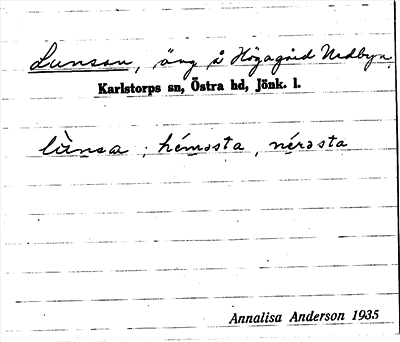 Lunsan, äng å Högagärd Nedbyn.
Karlstorps sn, Östra hd, Jönk. l.
lùnsa ; héməsta, nérəsta
Annalisa Anderson 1935